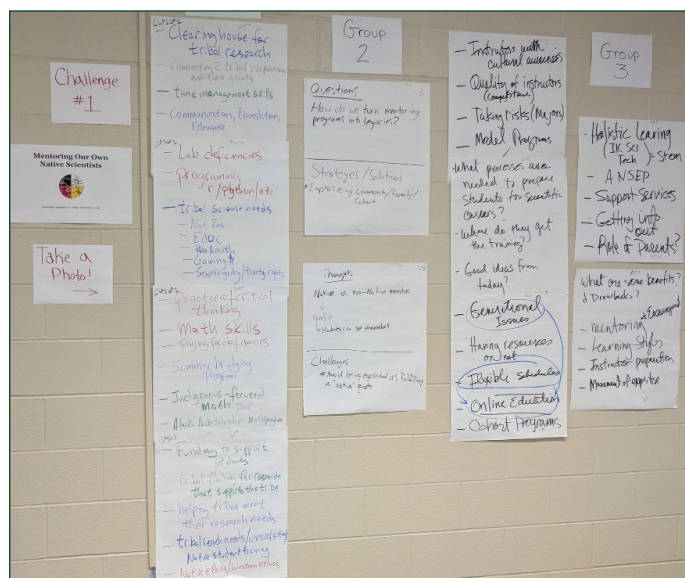 Challenge
#1
Mentoring Our Own
Native Scientists
Take a
Photo!
Clearing house for
tribal research
Connecting tribal corporations
and their assets
Time management skills
Communication, translation,
relevance
Lab deficiencies
Programing
r/python/etc
tribal Science needs
Nat Res
Educ
Health
Gaming
Sovereignty/treaty rights
Practice critical
thinking
Math skills
Summer bridging
programs
Indigenous-focused
math
Funding to support
studies
tribal funding for research
that supports the tribe
helping tribes meet
their research needs
tribal needs/university
Native student training
Native ethics/Western ethics
Group
2
Questions
How do we turn mentoring
programs into legacies?
Strategies/Solutions
Emphasizing community/family/
cohort
Thoughts
Native vs non-Native mentors
Challenges
a "Native" quota
- Instructors with
cultural awareness
- Quality of instructors
(competence)
- Taking risks (Majors)
- Model Programs
What processes are
needed to prepare
students for scientific
careers?
- Where do they get
the training?
- Good ideas from
today?
- Generational
Issues
- Having resources
or not
- Flexible Schedules
- Online Education
- Cohort Programs
Group
3
- Holistic learning
(IK Sci
Tech) = Stem
- ANSEP
- Support Services
- Getting info
out
- Role of Parents?
What are some benefits?
& Drawbacks?
- mentoring
- Learning Styles
- Instructor preparation